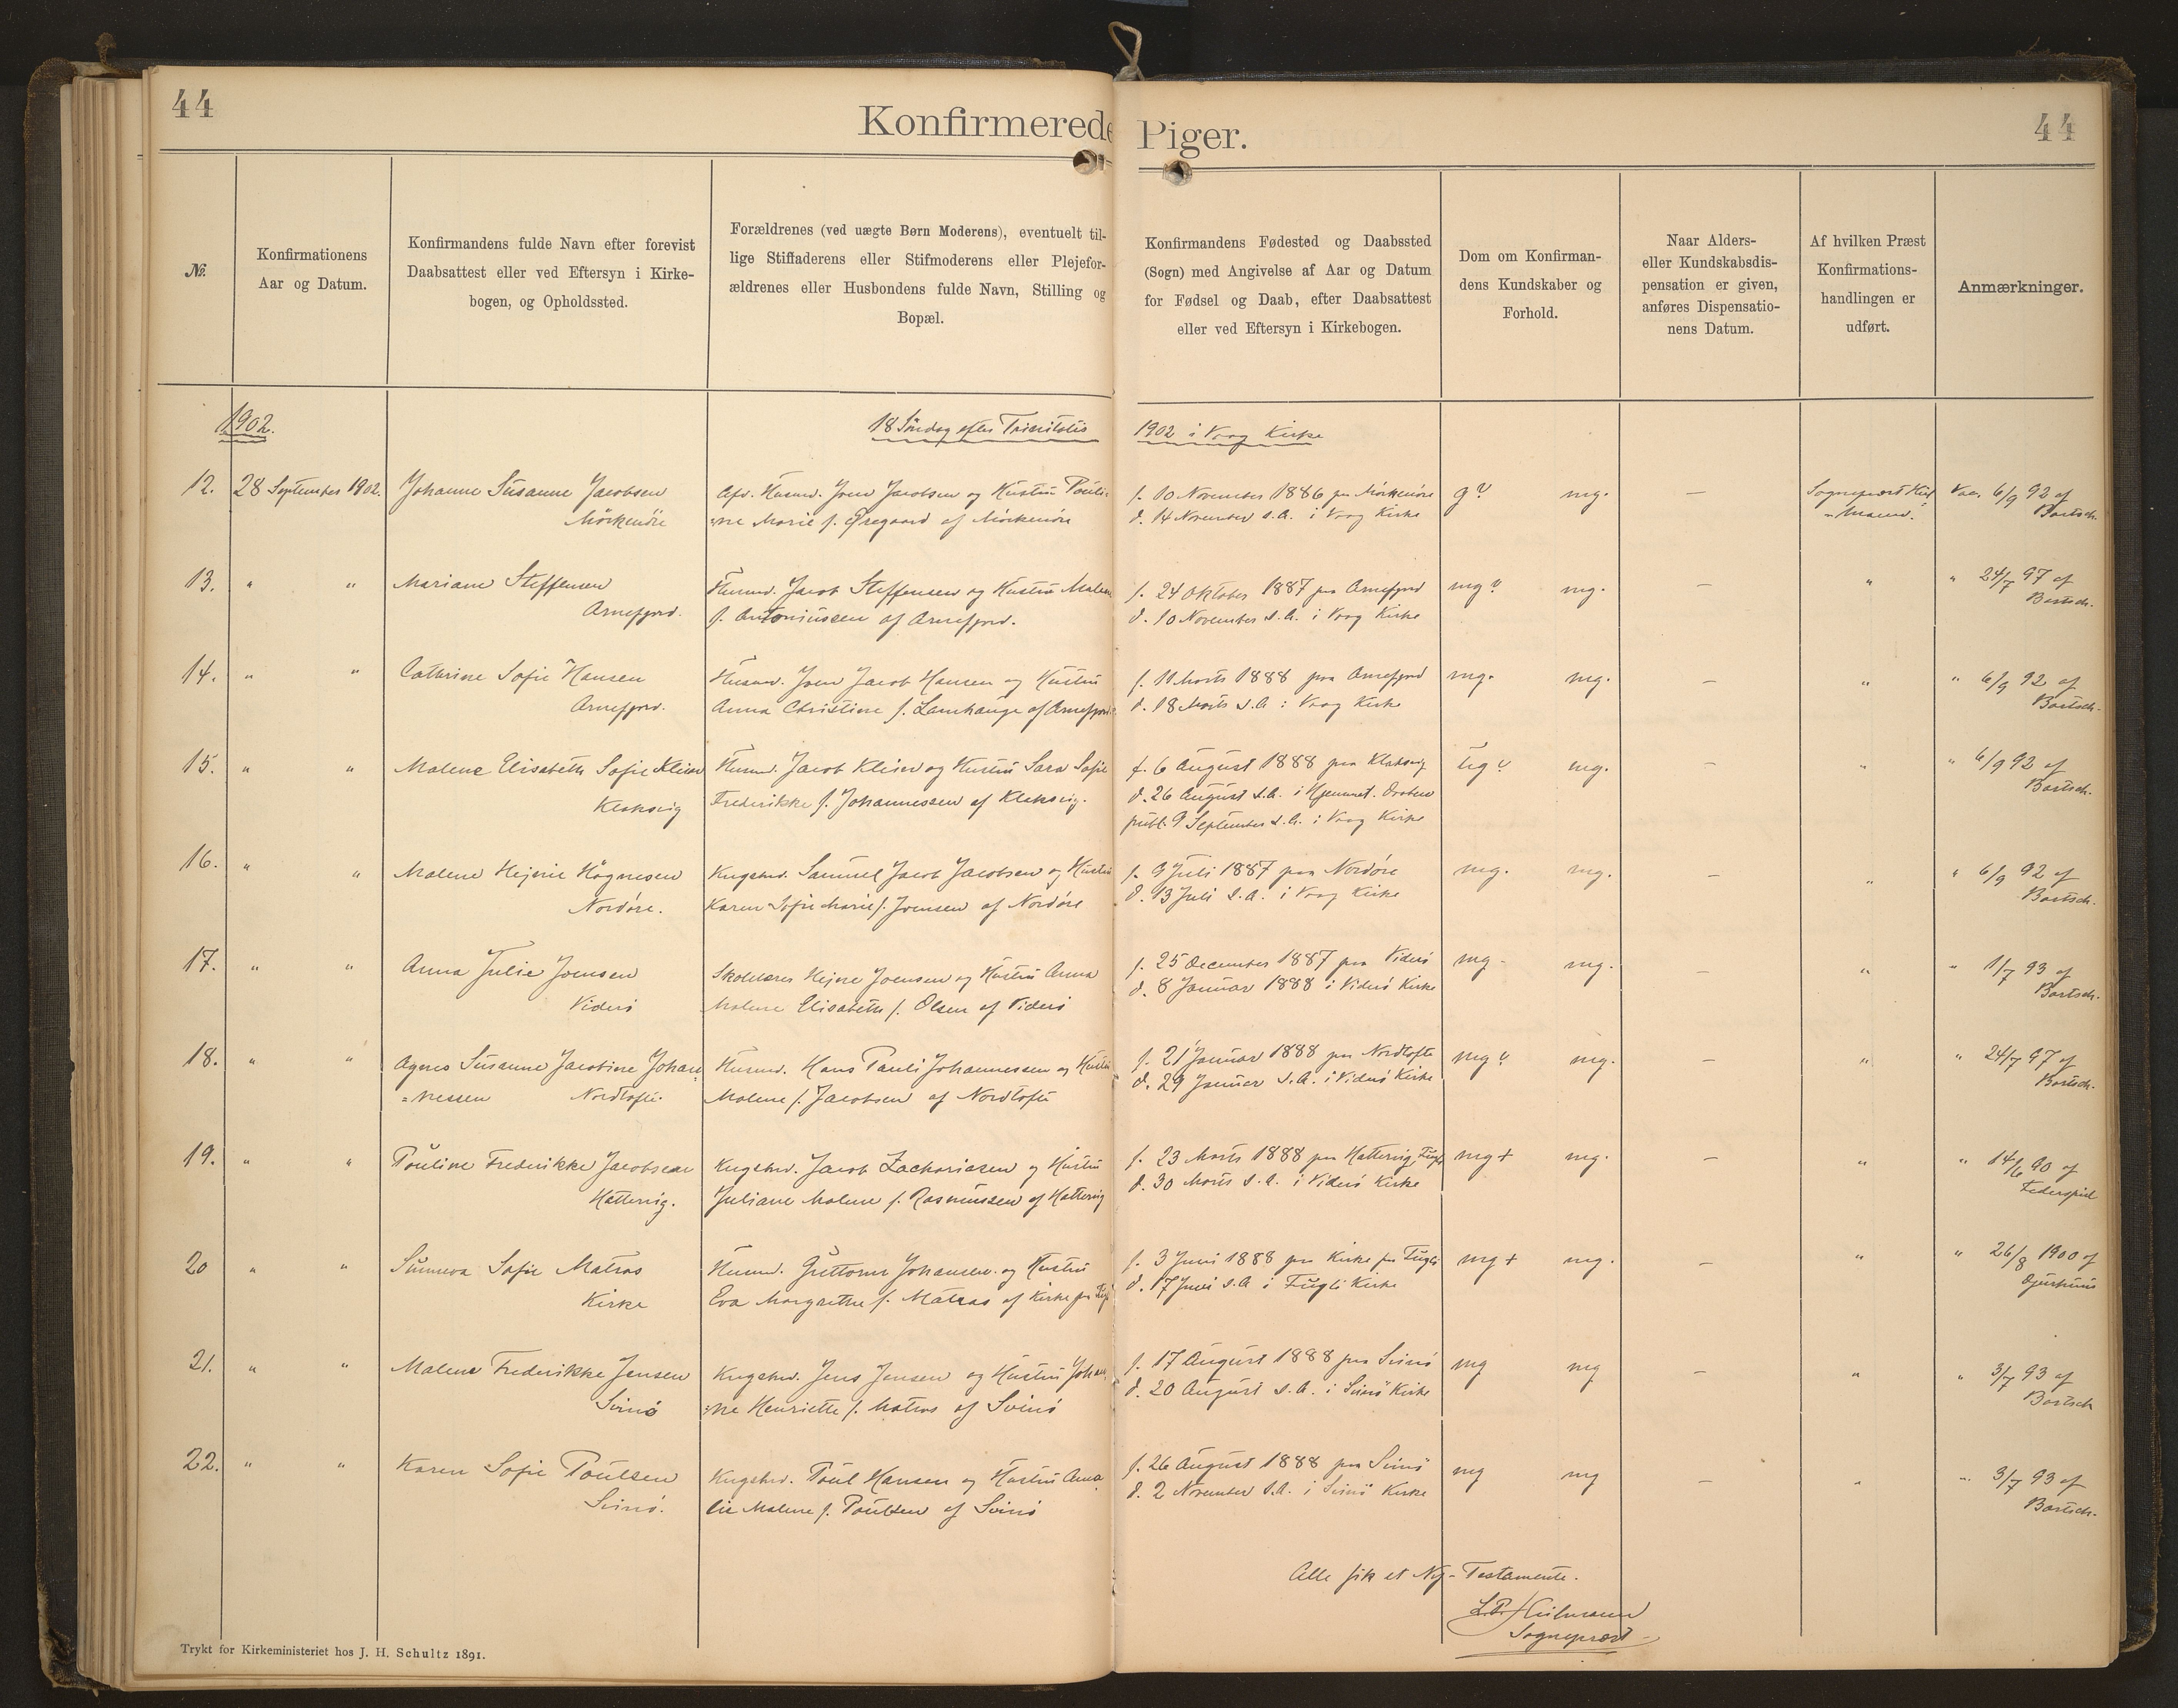 44
Konfirmerede Piger.
44
№.
Konfirmationens
Aar og Datum.
Konfirmandens fulde Navn efter forevist
Daabsattest eller ved Eftersyn i Kirke-
bogen, og Opholdssted.
Forældrenes (ved uægte Børn Moderens), eventuelt til-
lige Stiffaderens eller Stifmoderens eller Plejefor-
ældrenes eller Husbondens fulde Navn, Stilling og
Bopæl.
Konfirmandens Fødested og Daabssted
(Sogn) med Angivelse af Aar og Datum
for Fødsel og Daab, efter Daabsattest
eller ved Eftersyn i Kirkebogen.
Dom om Konfirman-
dens Kundskaber og
Forhold.
Naar Alders-
eller Kundskabsdis-
pensation er given,
anføres Dispensatio-
nens Datum.
Af hvilken Præst
Konfirmations-
handlingen er
udført.
Anmærkninger.
1902. 18 Søndag efter Trinitatis 1902 i Vaag Kirke
12. 28 September 1902. Johanne Susanne Jacobsen Afd. Husmd. Joen Jacobsen og Hustru Pouli- f. 10 November 1886 paa Mørkenøre g? mg. — Sognepræst Heil Vac. 6/9 92 af
Mørkenøre =ne Marie f. Øregaard af Mørkenøre d. 14 November s.A. i Vaag Kirke =mann. Bartsch.
13. " " Mariane Steffensen Husmd. Jacob Steffensen og Hustru Malene f. 24 Oktober 1887 paa Arnefjord mg? mg. — " " 24/7 97 af
Arnefjord. f. Antoniussen af Arnefjord. d. 10 November s.A. i Vaag Kirke Bartsch.
14. " " Cathrine Sofie Hansen Husmd. Joen Jacob Hansen og Hustru f. 11 Marts 1888 paa Arnefjord mg. mg. — " " 6/9 92 af
Arnefjord. Anna Christine f. Lamhauge af Arnefjord. d. 18 Marts s.A. i Vaag Kirke Bartsch.
15. " " Malene Elisabeth Sofie Klein Husmd. Jacob Klein og Hustru Sara Sofie f. 6 August 1888 paa Klaksvig tg? mg. — " " 6/9 92 af
Klaksvig Frederikke f. Johannessen af Klaksvig. d. 26 August s.A. i Hjemmet. Daaben Bartsch.
publ. 9 September s.A. i Vaag Kirke
16. " " Malene Hejnie Høgnesen Kngsbd. Samuel Jacob Jacobsen og Hustru f. 9 Juli 1887 paa Nordøre mg. mg. — " " 6/9 92 af
Nordøre. Karen Sofie Marie f. Joensen af Nordøre d. 13 Juli s.A. i Vaag Kirke Bartsch.
17. " " Anna Julie Joensen Skolelærer Hejne Joensen og Hustru Anna f. 25 December 1887 paa Viderø mg - mg. — " " 1/7 93 af
Viderø Malene Elisabeth f. Olsen af Viderø d. 8 Januar 1888 i Viderø Kirke Bartsch.
18. " " Agnes Susanne Jacobine Johan= Husmd. Hans Pauli Johannessen og Hustru f. 21 Januar 1888 paa Nordtofte mg? mg. — " " 24/7 97 af
=nessen Nordtofte. Malene f. Jacobsen af Nordtofte d. 29 Januar s.A. i Viderø Kirke Bartsch.
19. " " Pouline Frederikke Jacobsen Kngsbd. Jacob Zachariasen og Hustru f. 23 Marts 1888 paa Hattervig, Fuglø mg+ mg. — " " 14/6 90 af
Hattervig. Juliane Malene f. Rasmussen af Hattervig d. 30 Marts s.A. i Viderø Kirke Federspiel
20 " " Sunneva Sofie Matras Husmd. Guttorm Johansen og Hustru f. 3 Juni 1888 paa Kirke paa Fuglø mg+ mg. — " " 26/8 1900 af
Kirke Eva Margrethe f. Matras af Kirke paa Fuglø d. 17 Juni s.A i Fuglø Kirke
21. " " Malene Frederikke Jensen Kngsbd. Jens Jensen og Hustru Johan= f. 17 August 1888 paa Svinø mg mg — " " 3/7 93 af
Svinø =ne Henriette f. Matras af Svinø d. 20 August s.A. i Svinø Kirke Bartsch
22. " " Karen Sofie Poulsen Kngsbd. Poul Hansen og Hustru Ama= f. 26 August 1888 paa Svinø mg mg — " " 3/7 93 af
Svinø. lie Malene f. Poulsen af Svinø d. 2 November s.A. i Svinø Kirke Bartsch.
Alle fik et Ny-Testamente.
L.P. Heilmann
Sognepræst
Trykt for Kirkeministeriet hos J. H. Schultz 1891.